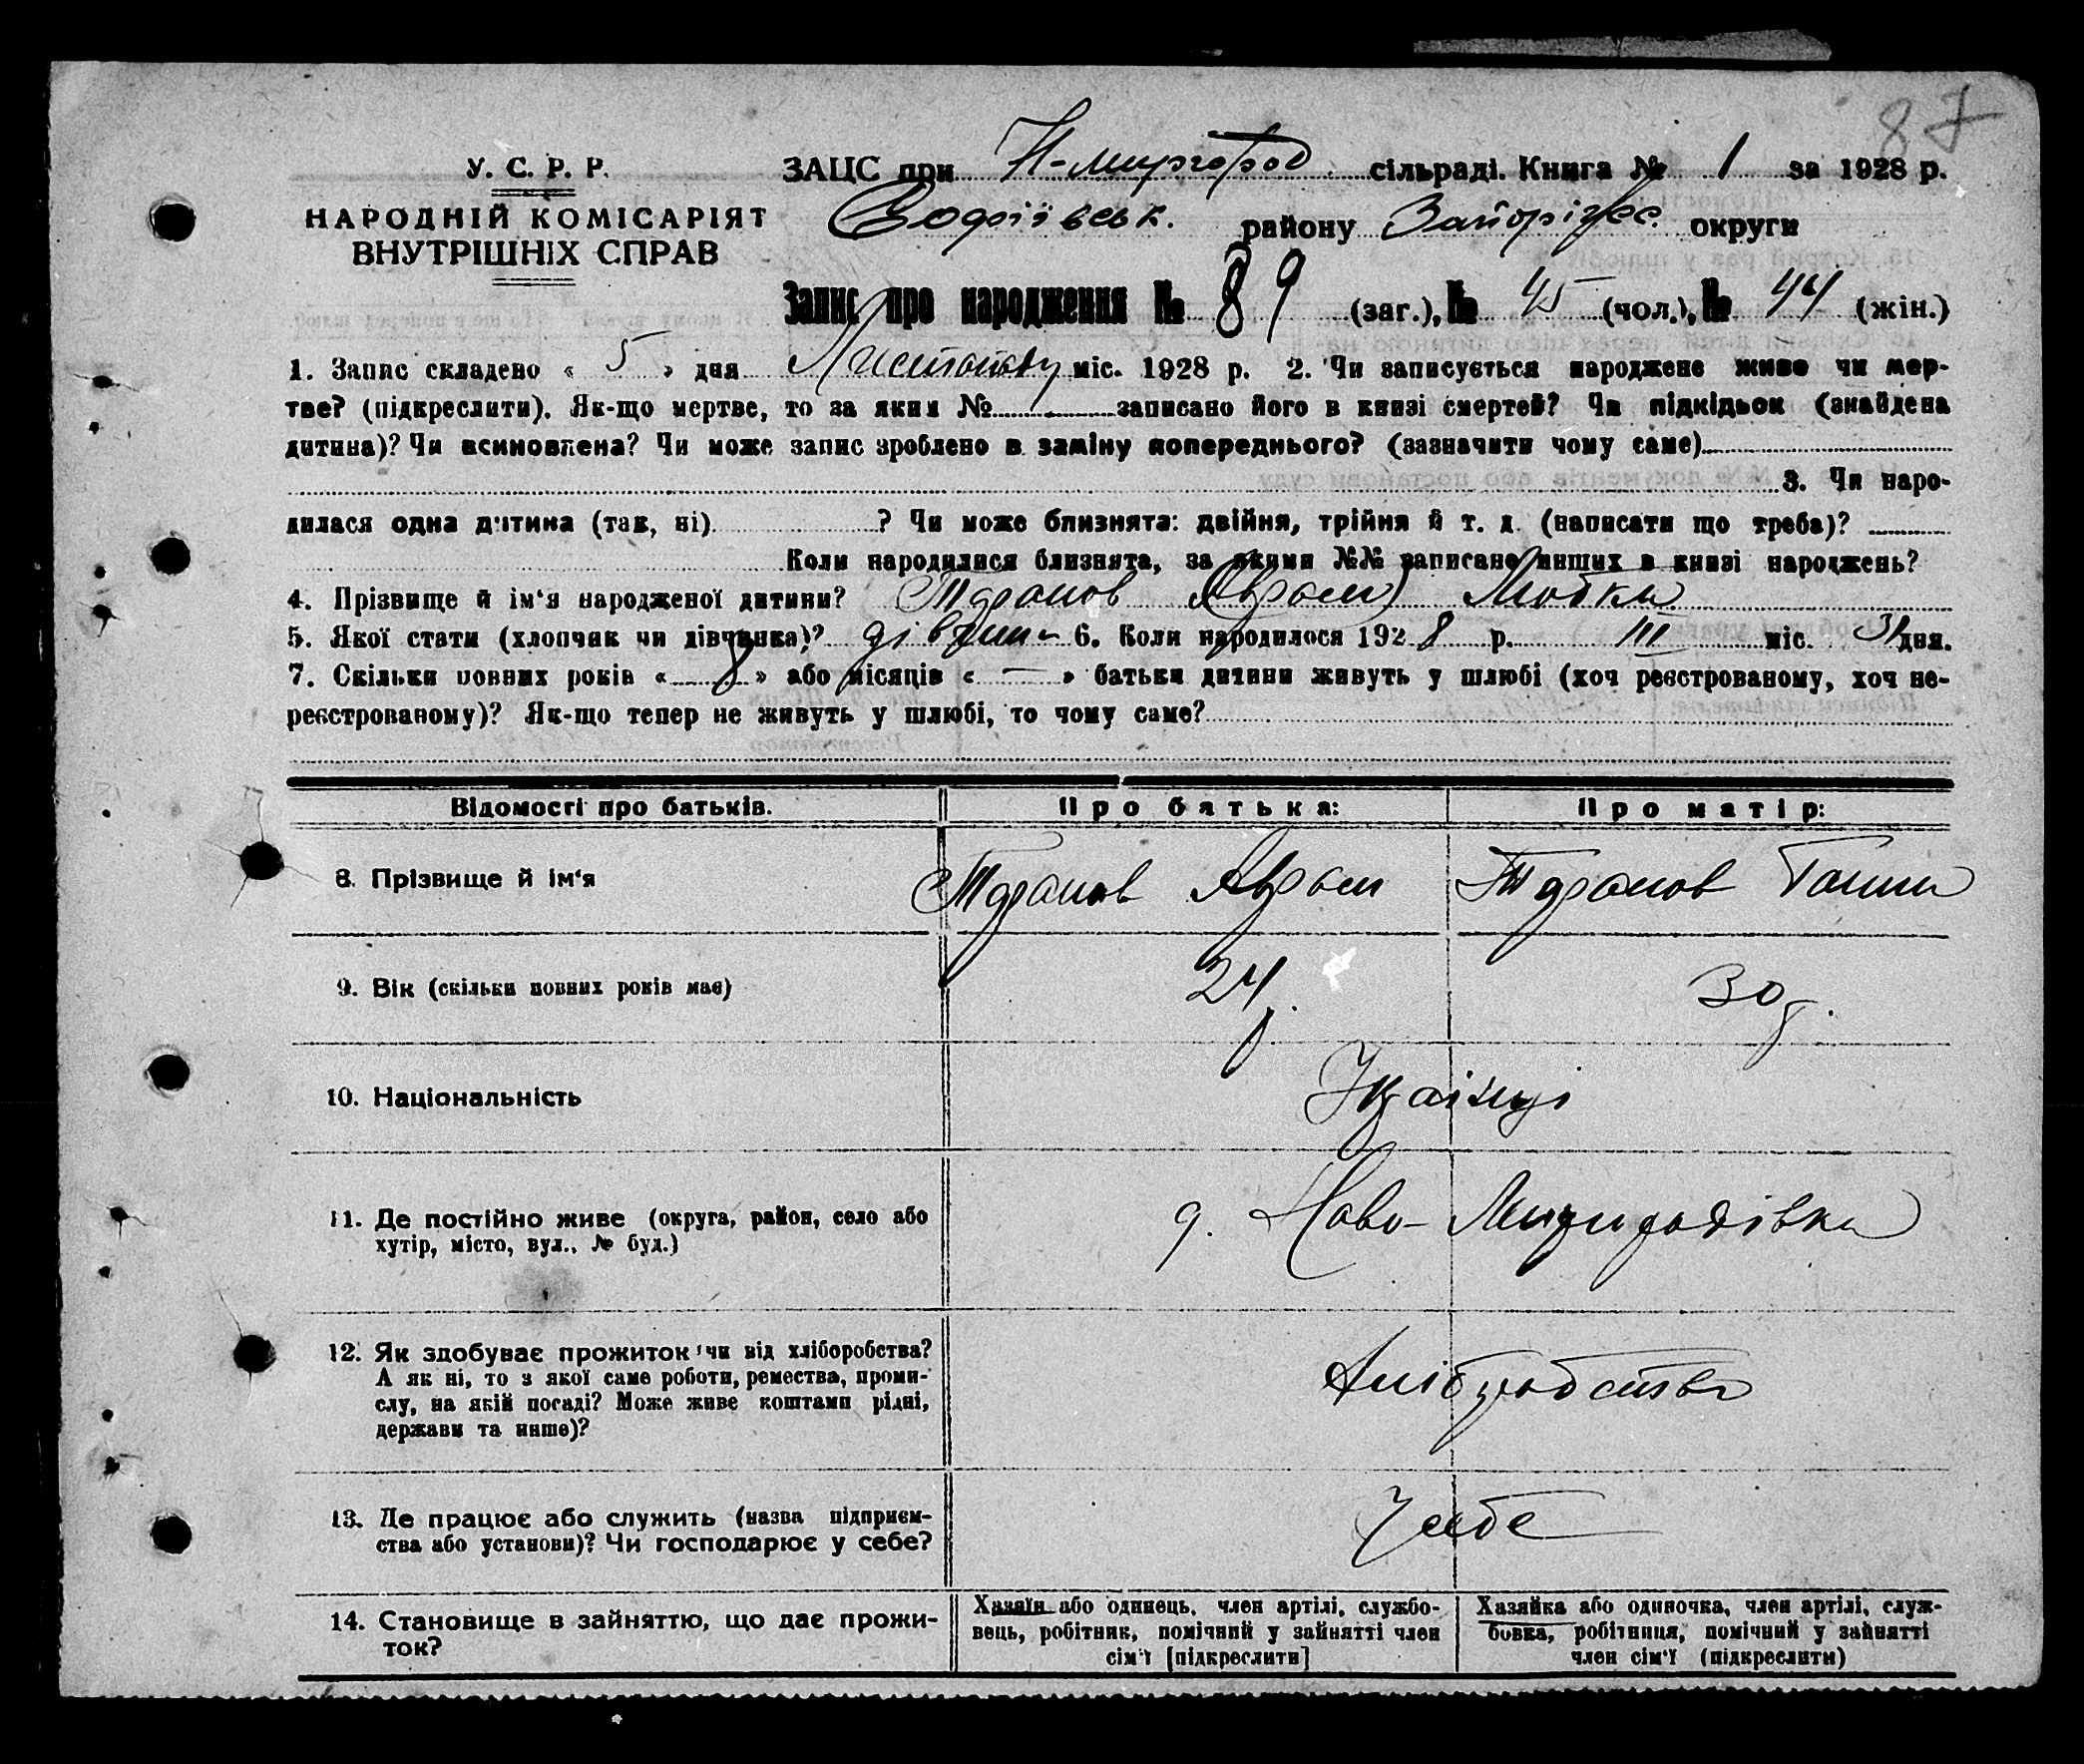 87
У. С. Р. Р.
НАРОДНІЙ КОМІСАРІЯТ
ВНУТРІШНІХ СПРАВ
ЗАЦС при Н-миргород. сільраді. Книга № 1 за 1928 р.
Софіївськ. району Запоріzьк. округи
Запис про народження № 89 (заг.), № 45 (чол.), № 44 (жін.)
1. Запис складено « 5 » дня Листопаду міс. 1928 р. 2. Чи записується народжене живе чи мер-
тве? (підкреслити). Як-що мертве, то за яким № записано його в книзі смертей? Чи підкідьок (знайдена
дитина)? Чи всиновлена? Чи може запис зроблено в заміну попереднього? (зазначити чому саме)
3. Чи наро-
дилася одна дитина (так, ні) ? Чи може близнята: двійня, трійня й т. д. (написати що треба)?
Коли народилися близнята, за якими №№ записано инших в книзі народжень?
4. Прізвище й ім'я народженої дитини? (Аврам)
5. Якої стати (хлопчик чи дівчинка)? дівчин 6. Коли народилося 1928 р. III міс. 31 дня.
7. Скільки повних років « 8 » або місяців « — » батьки дитини живуть у шлюбі (хоч реєстрованому, хоч не-
реєстрованому)? Як-що тепер не живуть у шлюбі, то чому саме?
Відомості про батьків.
Про батька:
Про матір:
8. Прізвище й ім'я
Аврам
9. Вік (скільки повних років має)
30 р.
10. Національність
Українці
11. Де постійно живе (округа, район, село або
хутір, місто, вул., № буд.)
Ново-Миргородівка
12. Як здобуває прожиток чи від хліборобства?
А як ні, то з якої саме роботи, ремества, проми-
слу, на якій посаді? Може живе коштами рідні,
держави та инше)?
Хліборобство
13. Де працює або служить (назва підприєм-
ства або установи)? Чи господарює у себе?
У себе
14. Становище в зайняттю, що дає прожи-
ток?
Хазяїн або одинець, член артілі, службо-
вець, робітник, помічний у зайнятті член
сім'ї [підкреслити]
Хазяйка або одиночка, член артілі, служ-
бовка, робітниця, помічний у зайнятті
член сім'ї (підкреслити)